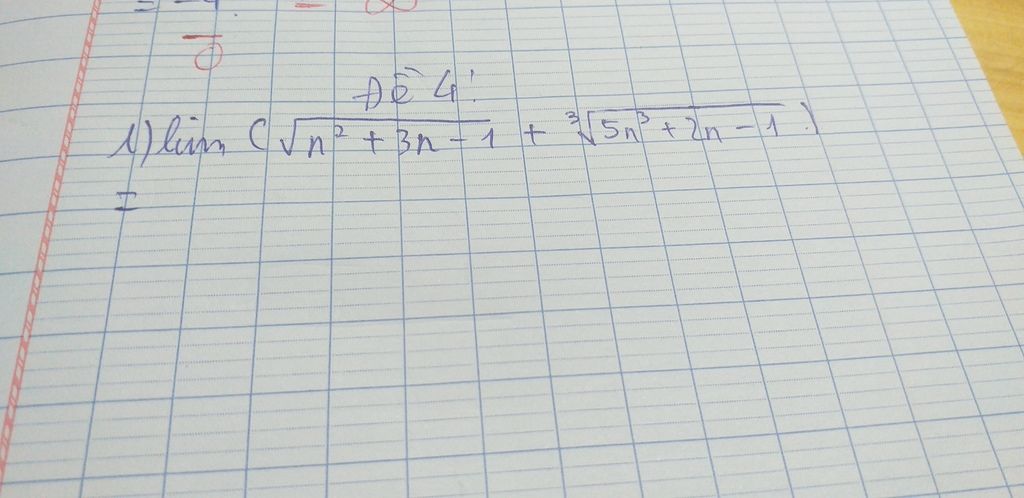 Đề 4:
1) lim ( √(n² + 3n - 1) + ³√(5n³ + 2n - 1) )
=